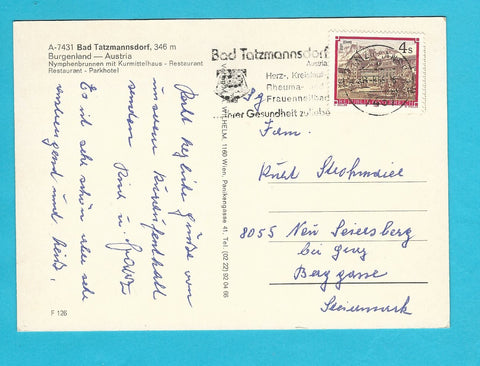 A-7431 Bad Tatzmannsdorf, 346 m
Burgenland — Austria
Nymphenbrunnen mit Kurmittelhaus - Restaurant
Restaurant - Parkhotel
Bad Tatzmannsdorf
Austria
Herz-, Kreislauf-
Rheuma- und
Frauenheilbad
Ihrer Gesundheit zuliebe
4s
REPUBLIK ÖSTERREICH
WILHELM, 1160 Wien, Panikengasse 41, Tel. (02 22) 92 04 66
Recht herzliche Grüße von
unserem Kuraufenthalt
senden
Es ist sehr schön aber sehr
anstrengend und heiß.
Fam.
Kurt Strohmaier
8055 Neu Seiersberg
bei Graz
Berggasse
Steiermark
F 126